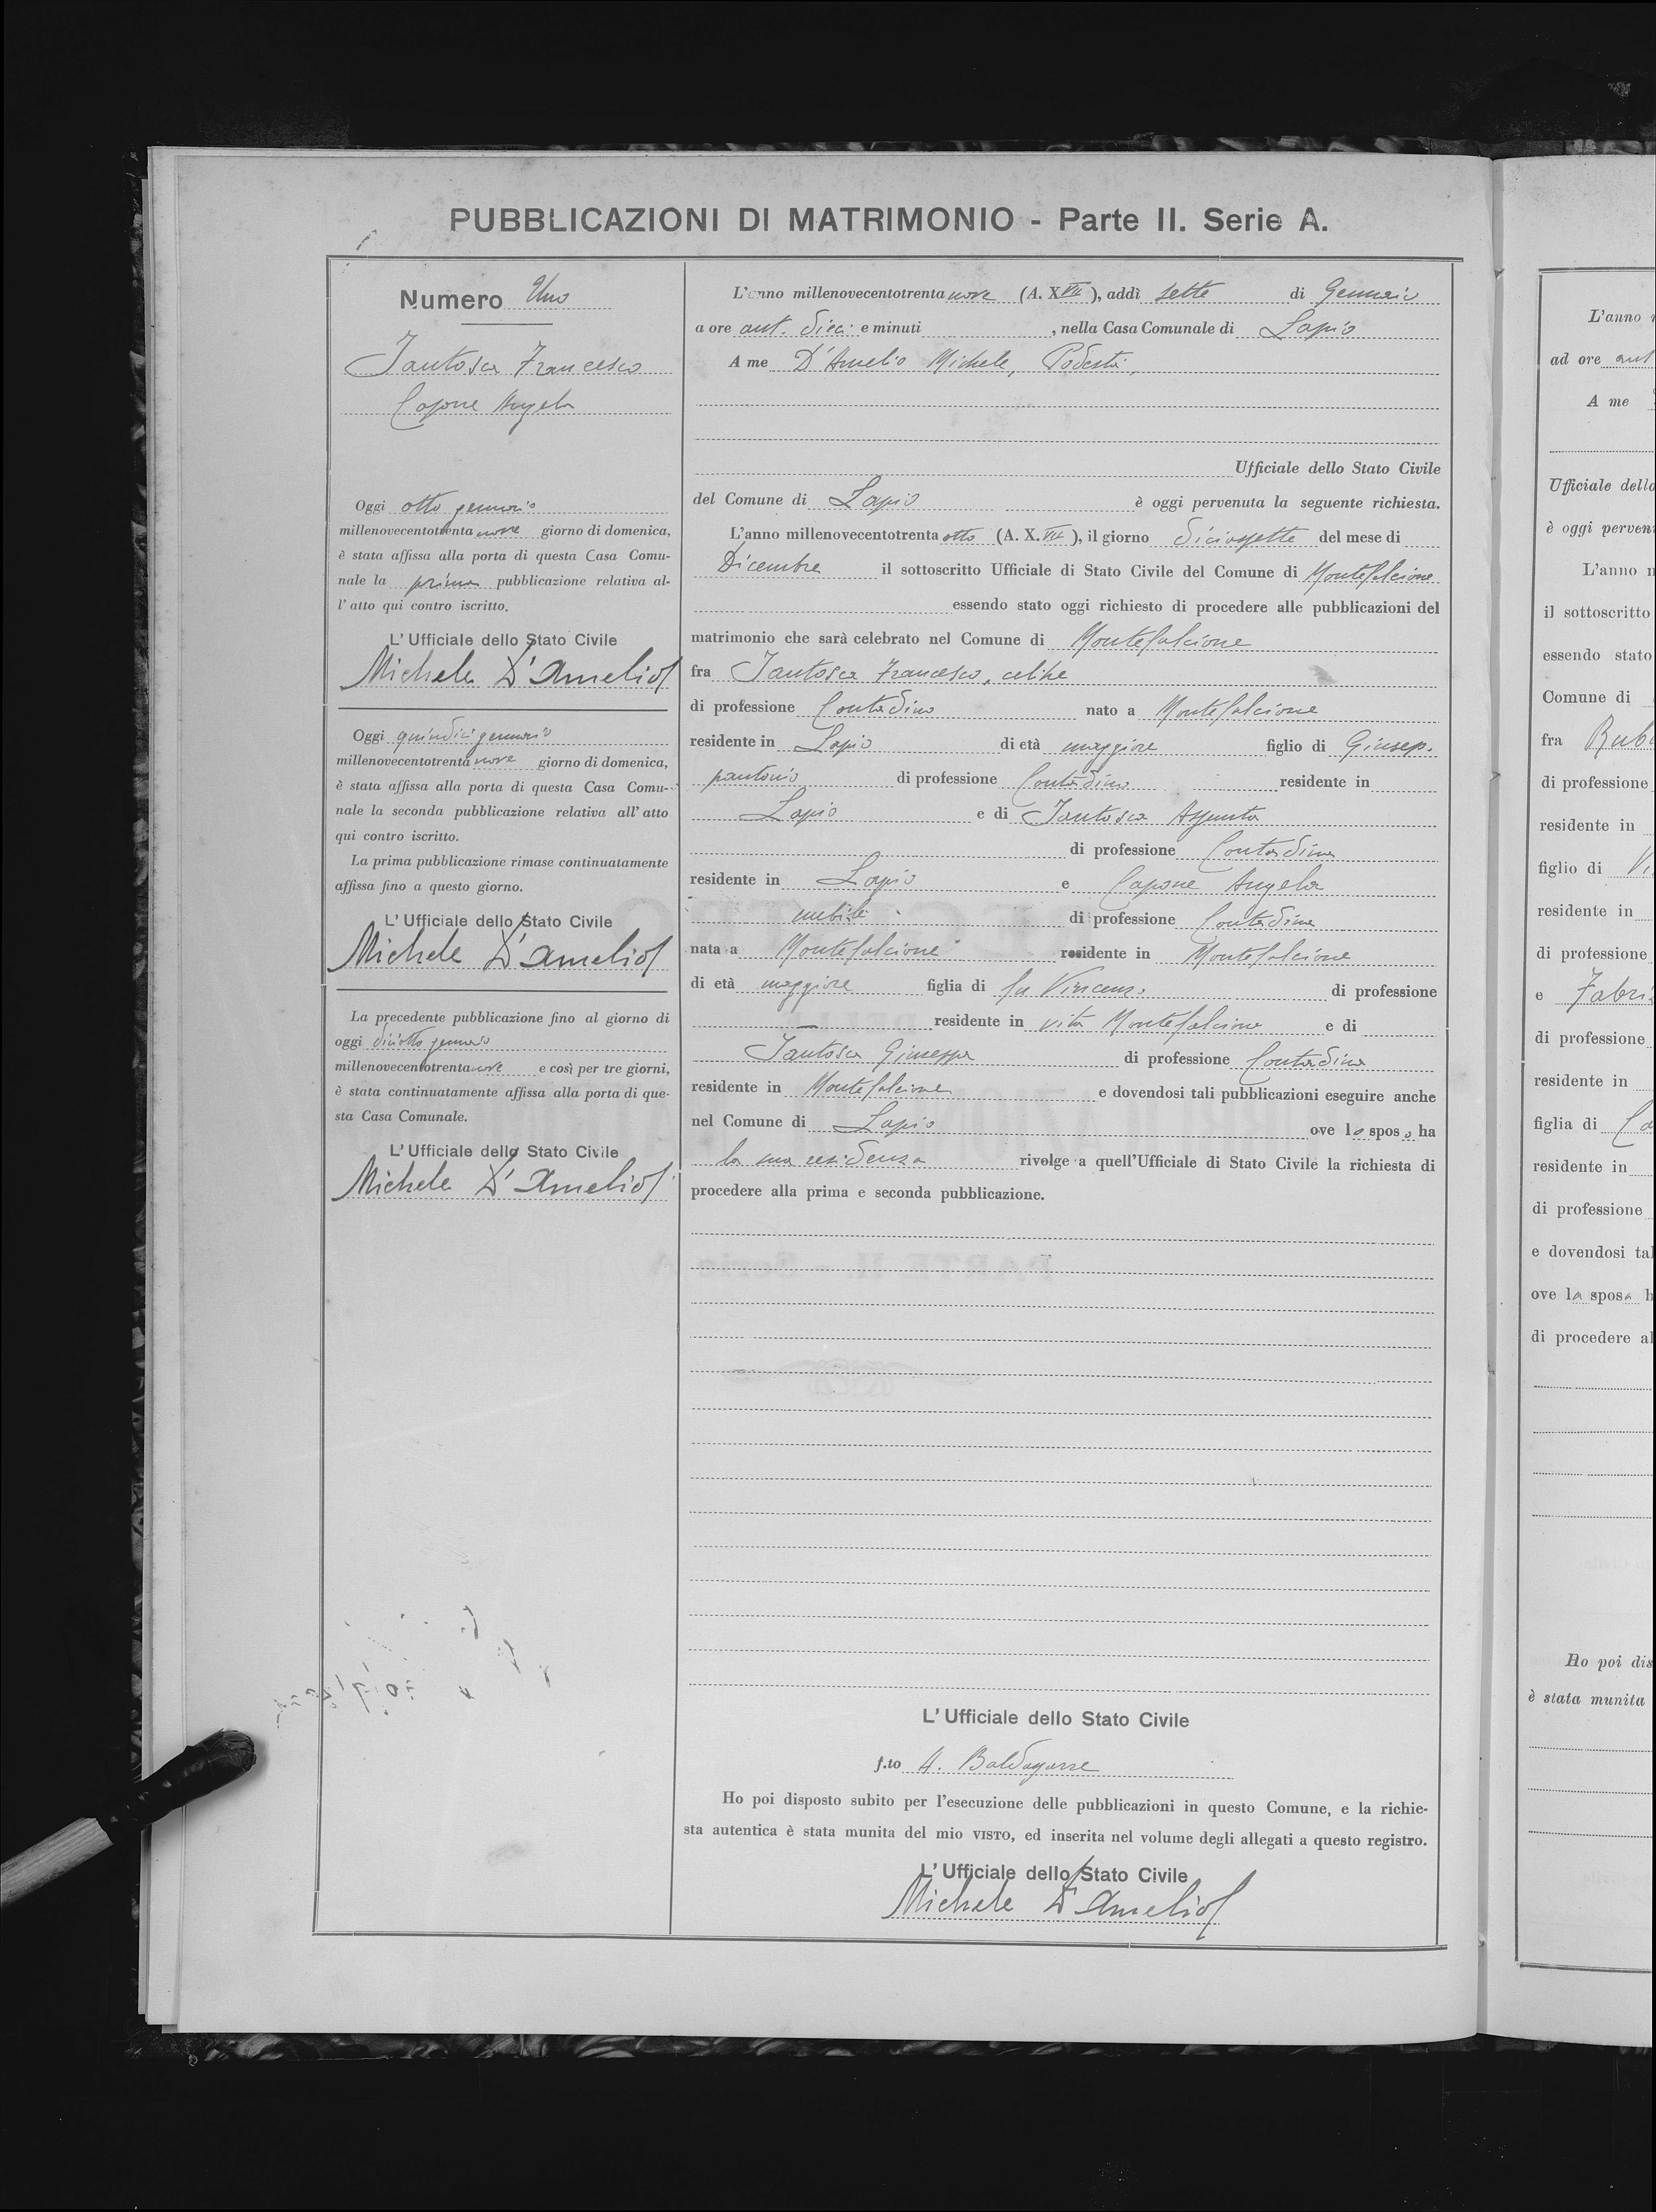 PUBBLICAZIONI DI MATRIMONIO - Parte II. Serie A.
Numero Uno
Iantosca Francesco
Capone Angela
Oggi otto gennaio
millenovecentotrenta nove giorno di domenica,
è stata affissa alla porta di questa Casa Comu-
nale la prima pubblicazione relativa al-
l'atto qui contro iscritto.
L'Ufficiale dello Stato Civile
Michele D'Amelio
Oggi quindici gennaio
millenovecentotrenta nove giorno di domenica,
è stata affissa alla porta di questa Casa Comu-
nale la seconda pubblicazione relativa all'atto
qui contro iscritto.
La prima pubblicazione rimase continuatamente
affissa fino a questo giorno.
L'Ufficiale dello Stato Civile
Michele D'Amelio
La precedente pubblicazione fino al giorno di
oggi diciotto gennaio
millenovecentotrenta nove e così per tre giorni,
è stata continuatamente affissa alla porta di que-
sta Casa Comunale.
L'Ufficiale dello Stato Civile
Michele D'Amelio
L'anno millenovecentotrenta nove (A. XVII), addì sette di Gennaio
a ore ant. dieci e minuti , nella Casa Comunale di Lapio
A me D'Amelio Michele, Podestà,
Ufficiale dello Stato Civile
del Comune di Lapio è oggi pervenuta la seguente richiesta.
L'anno millenovecentotrenta otto (A. X.VII), il giorno diciassette del mese di
Dicembre il sottoscritto Ufficiale di Stato Civile del Comune di Montefalcione
essendo stato oggi richiesto di procedere alle pubblicazioni del
matrimonio che sarà celebrato nel Comune di Montefalcione
fra Iantosca Francesco, celibe
di professione Contadino nato a Montefalcione
residente in Lapio di età maggiore figlio di Giusep.
pantonio di professione Contadino residente in
Lapio e di Iantosca Assunta
di professione Contadina
residente in Lapio e Capone Angela
nubile di professione Contadina
nata a Montefalcione residente in Montefalcione
di età maggiore figlia di fu Vincenzo di professione
— residente in vita Montefalcione e di
Iantosca Giuseppa di professione Contadina
residente in Montefalcione e dovendosi tali pubblicazioni eseguire anche
nel Comune di Lapio ove lo sposo ha
la sua residenza rivolge a quell'Ufficiale di Stato Civile la richiesta di
procedere alla prima e seconda pubblicazione.
L'Ufficiale dello Stato Civile
f.to A. Baldassarre
Ho poi disposto subito per l'esecuzione delle pubblicazioni in questo Comune, e la richie-
sta autentica è stata munita del mio VISTO, ed inserita nel volume degli allegati a questo registro.
L'Ufficiale dello Stato Civile
Michele D'Amelio
L'anno
ad ore ant
A me
Ufficiale dello
è oggi
L'anno
il sottoscritto
essendo stato
Comune di
fra
di professione
residente in
figlio di
residente in
di professione
e
di professione
residente in
figlia di
residente in
di professione
e dovendosi
ove la sposa
di procedere
Ho poi
è stata munita